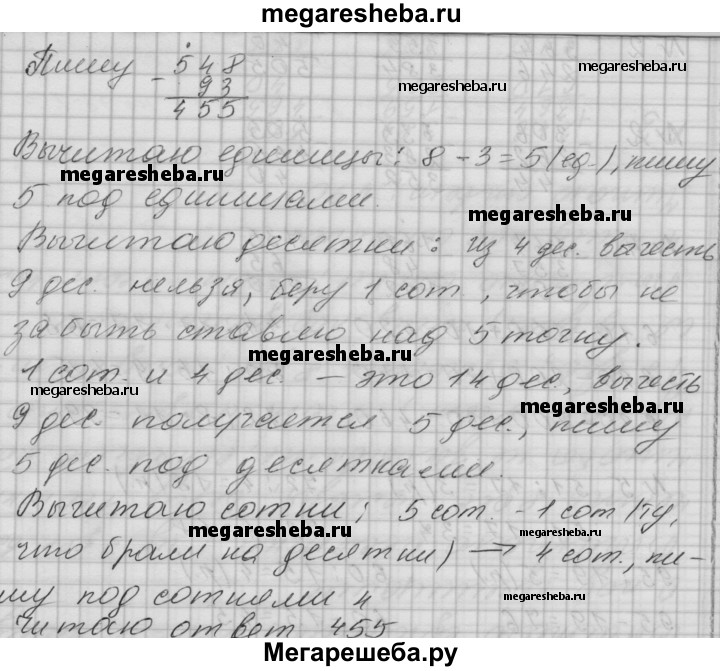 megaresheba.ru
Пишу 548
- 93
455
megaresheba.ru
Вычитаю единицы: 8 - 3 = 5 (ед.), пишу
megaresheba.ru
5 под единицами.
megaresheba.ru
Вычитаю десятки: из 4 дес. вычесть
9 дес. нельзя, беру 1 сот., чтобы не
забыть ставлю над 5 точку.
megaresheba.ru
1 сот. и 4 дес. — это 14 дес., вычесть
megaresheba.ru
megaresheba.ru
9 дес. получается 5 дес., пишу
5 дес. под десятками.
Вычитаю сотни: 5 сот. - 1 сот (ту,
megaresheba.ru
megaresheba.ru
что брали на десятки) → 4 сот., пи-
шу под сотнями 4
megaresheba.ru
Читаю ответ 455
Мегарешеба.ру